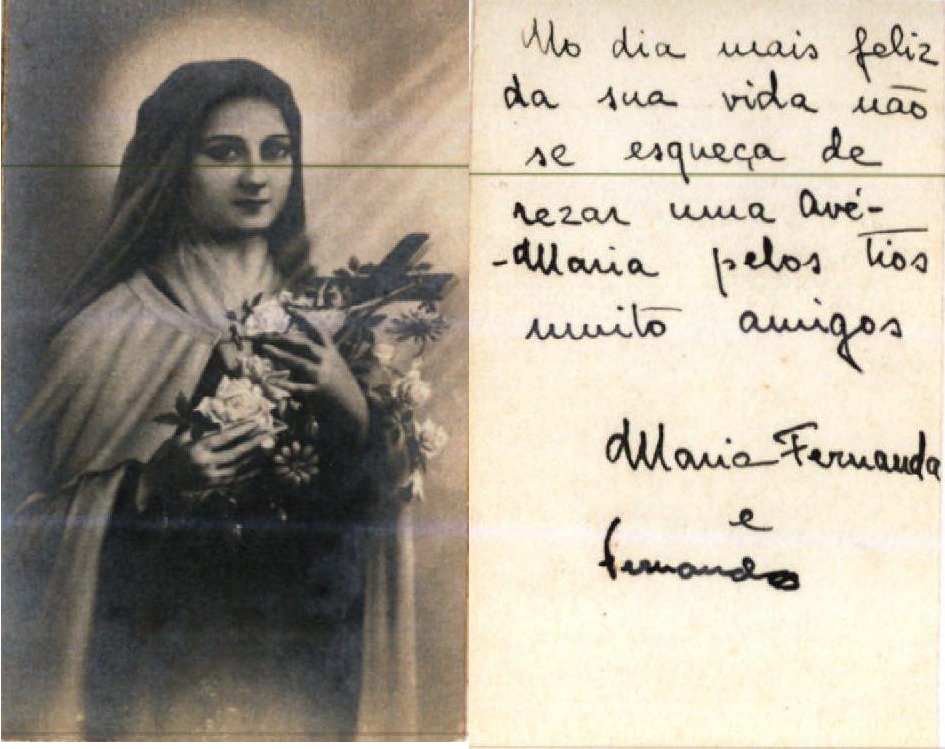 No dia mais feliz
da sua vida não
se esqueça de
rezar uma Avé-
-Maria pelos Tios
muito amigos
Maria Fernanda
e
Fernando